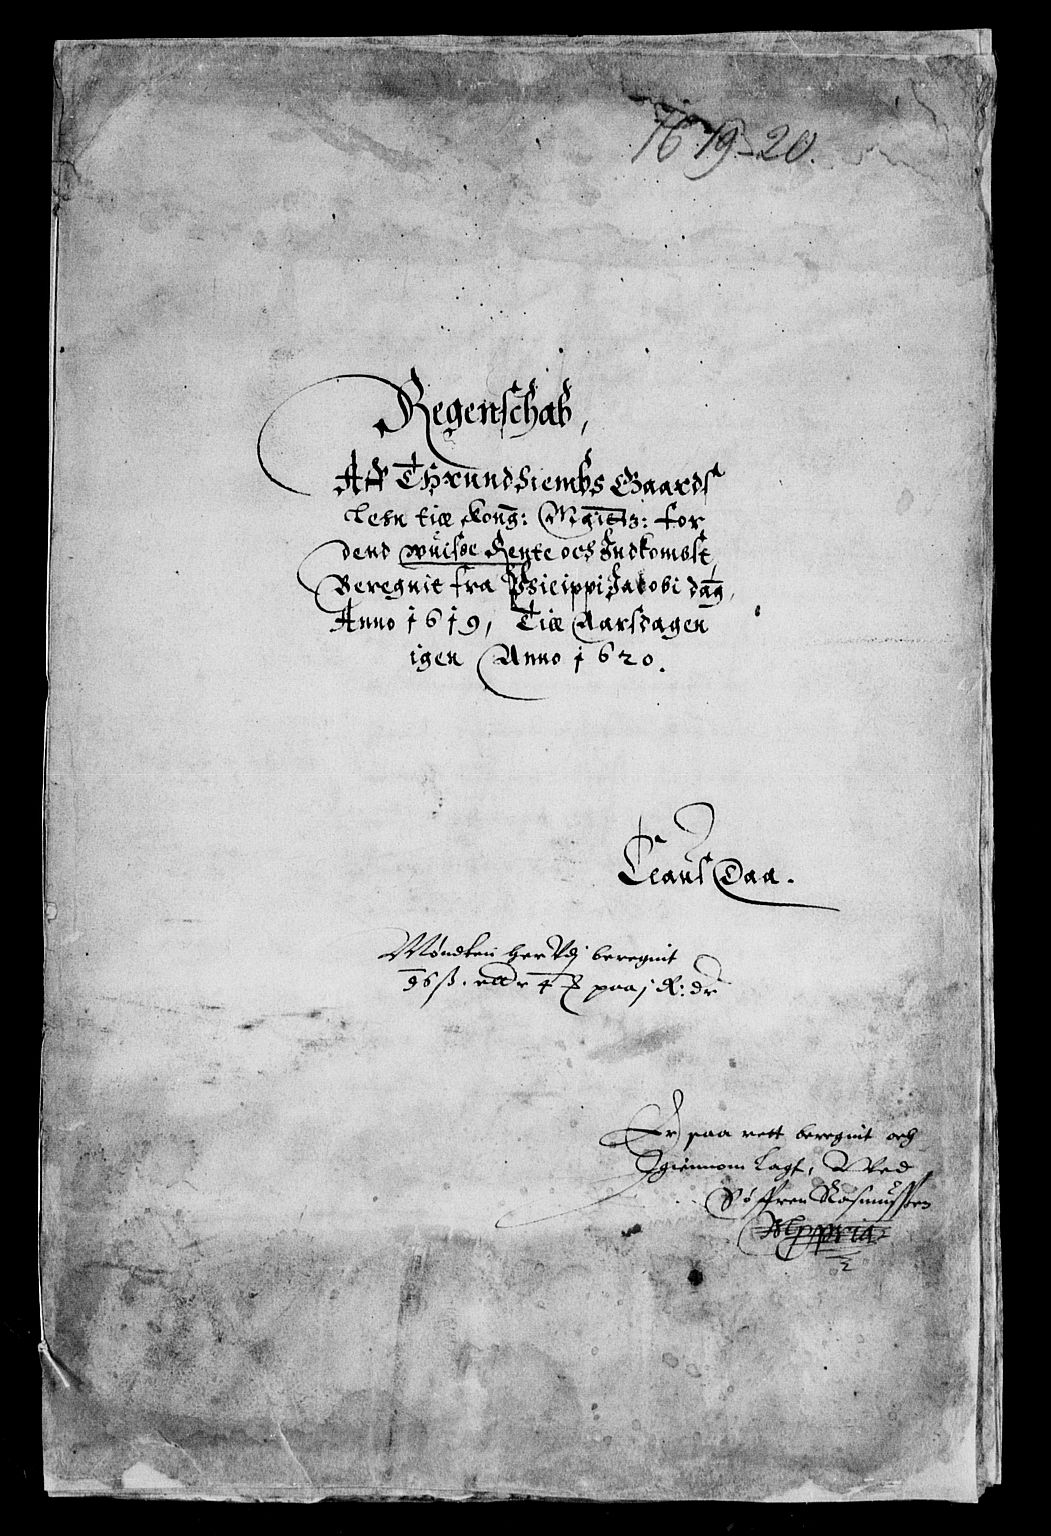 1619-20.
Regenschab,
Aff Thrundhiembs Gaards
Lehn till Kong: Maÿtts: for
dend wuisse Rente och Indkombst,
Beregnit fra Philippi Jacobi dag,
Anno 1619, Till Aarsdagen
igen Anno 1620.
Claus Daa.
Møndten her Vdj beregnit
96 ß. eller 4 paa j R: dr
Er saa rett beregnit och
Igiennom Lagt, Wed
Søffren Rasmussen
Mppria